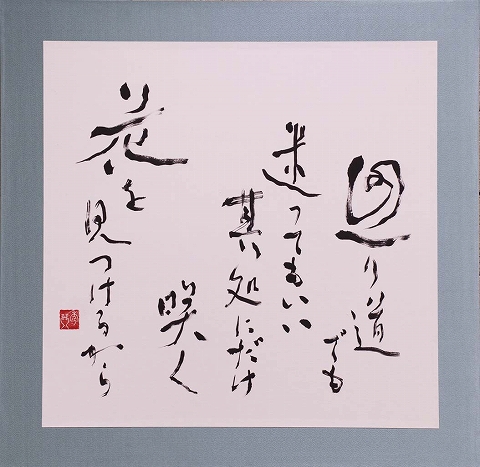 廻り道でも
迷ってもいい
其処にだけ
咲く
花を見つけるから